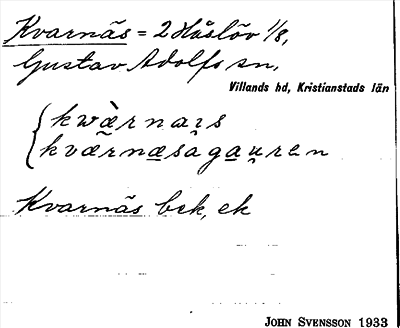 Kvarnäs = 2 Håslöv 1/8,
Gustav Adolfs sn,
Villands hd, Kristianstads län
kwæ̀rnaıs
kværnæsàgaụren
Kvarnäs bek, ek
JOHN SVENSSON 1933